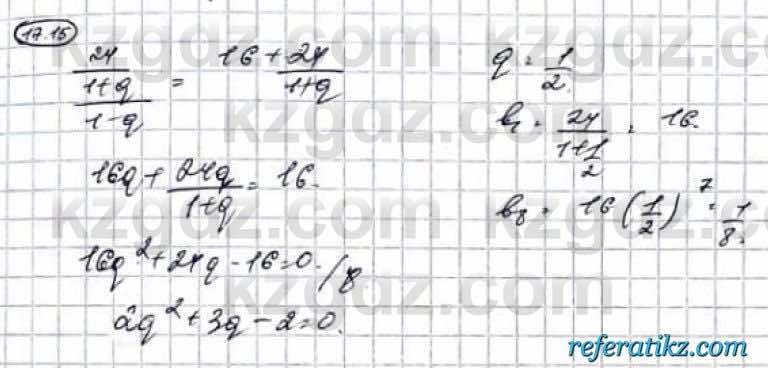 17.15
\frac{\frac{24}{1+q}}{1-q} = 16 + \frac{24}{1+q}
16q + \frac{24q}{1+q} = 16.
16q^2 + 24q - 16 = 0. /8
2q^2 + 3q - 2 = 0.
q = \frac{1}{2}.
b_1 = \frac{24}{1+\frac{1}{2}} = 16.
b_8 = 16 (\frac{1}{2})^7 = \frac{1}{8}.
kzgdz.com
referatikz.com